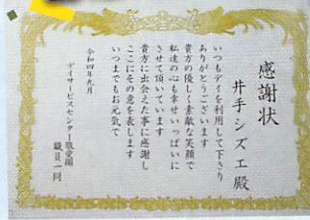 感謝状
井手シズエ殿
いつもデイを利用して下さり
ありがとうございます
貴方の優しく素敵な笑顔で
私達の心も幸せいっぱいに
させて頂いています
貴方に出会えた事に感謝し
ここにその意を表します
いつまでもお元気で
令和四年九月
デイサービスセンター敬愛園
職員一同